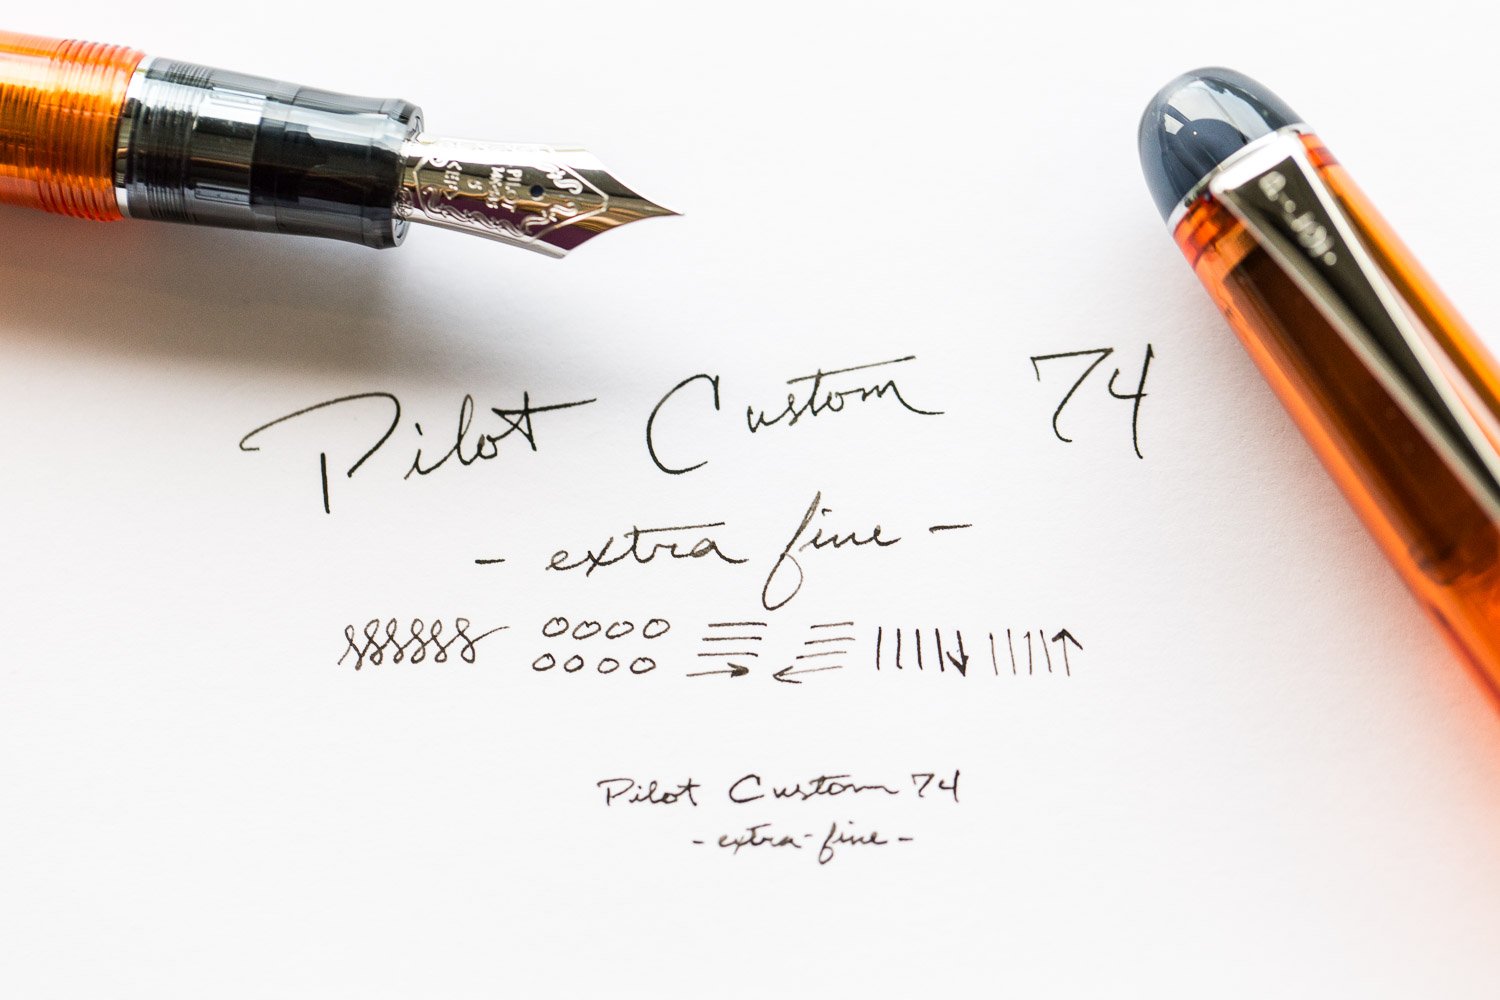 PILOT
Pilot Custom 74
- extra fine -
Pilot Custom 74
- extra-fine -